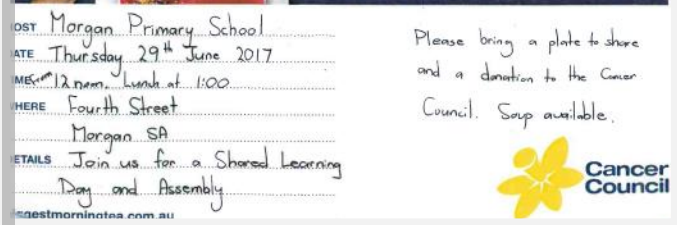 OST Morgan Primary School
ATE Thursday 29th June 2017
ME From 12 noon. Lunch at 1:00
HERE Fourth Street
Morgan SA
ETAILS Join us for a Shared Learning
Day and Assembly
gestmorningtea.com.au
Please bring a plate to share
and a donation to the Cancer
Council. Soup available.
Cancer
Council